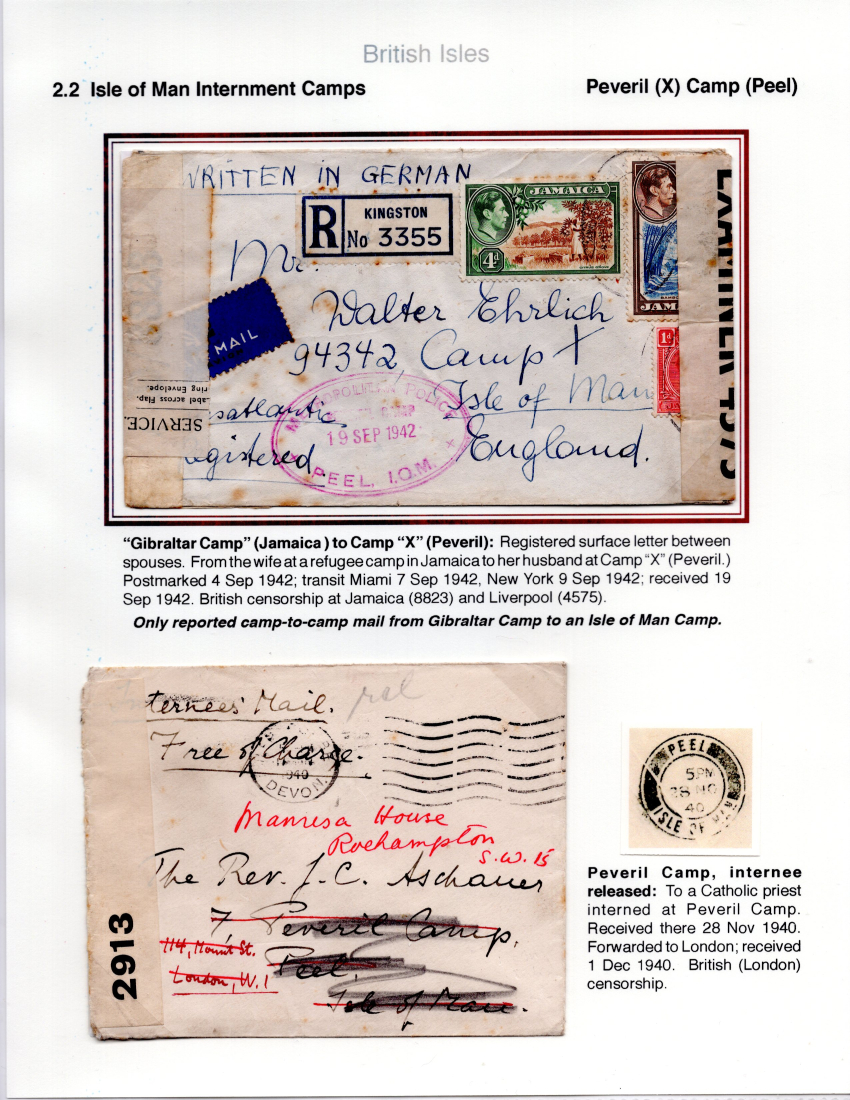 British Isles
2.2 Isle of Man Internment Camps
Peveril (X) Camp (Peel)
WRITTEN IN GERMAN
R KINGSTON
No 3355
JAMAICA
4d
JAM
1d
EXAMINER 4575
Mr.
MAIL
Walter Ehrlich
94342, Camp X
Isle of Man
England.
ring Envelope.
Label across Flap.
SERVICE.
satlantic
egistered.
METROPOLITAN POLICE
19 SEP 1942
PEEL, I.O.M.
"Gibraltar Camp" (Jamaica) to Camp "X" (Peveril): Registered surface letter between
spouses. From the wife at a refugee camp in Jamaica to her husband at Camp "X" (Peveril.)
Postmarked 4 Sep 1942; transit Miami 7 Sep 1942, New York 9 Sep 1942; received 19
Sep 1942. British censorship at Jamaica (8823) and Liverpool (4575).
Only reported camp-to-camp mail from Gibraltar Camp to an Isle of Man Camp.
ternees' Mail.
Free of Charge.
1940
DEVON.
Manresa House
Roehampton
S.W. 15
The Rev. J. C. Aschauer
7, Peveril Camp,
114, Mount St.
Peel,
London, W.1
Isle of Man.
2913
PEEL
5 PM
28 NO
40
ISLE OF MAN
Peveril Camp, internee
released: To a Catholic priest
interned at Peveril Camp.
Received there 28 Nov 1940.
Forwarded to London; received
1 Dec 1940. British (London)
censorship.